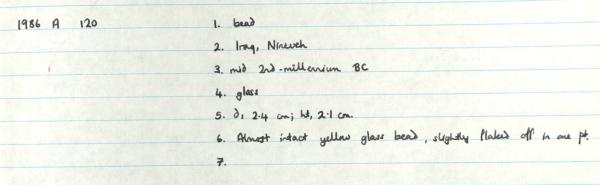 1986 A 120 1. bead
2. Iraq, Nineveh
3. mid 2nd-millennium BC
4. glass
5. d, 2.4 cm; ht, 2.1 cm.
6. Almost intact yellow glass bead, slightly flaked off in one pt.
7.